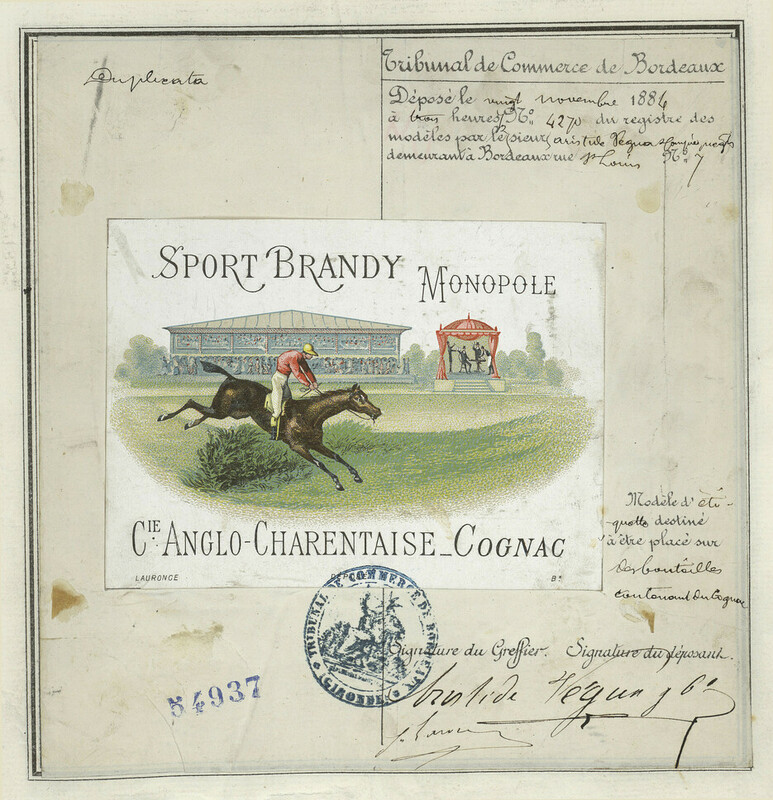 Duplicata
Tribunal de Commerce de Bordeaux
Déposé le vingt novembre 1884
à trois heures, No. 4270 du registre des
modèles par le sieur Aristide
demeurant à Bordeaux rue St Louis No. 7
SPORT BRANDY MONOPOLE
CIE ANGLO-CHARENTAISE_COGNAC
LAURONCE DÉP Bx
Modèle d'éti-
quette destiné
à être placé sur
des bouteilles
contenant du Cognac
TRIBUNAL DE COMMERCE DE BORDEAUX
(GIRONDE)
Signature du Greffier. Signature du déposant.
54937
Aristide